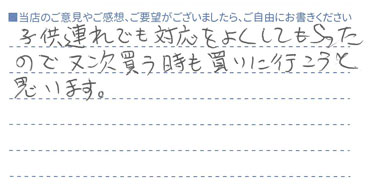 ■当店のご意見やご感想、ご要望がございましたら、ご自由にお書きください
子供連れでも対応をよくしてもらった
ので又次買う時も買いに行こうと
思います。